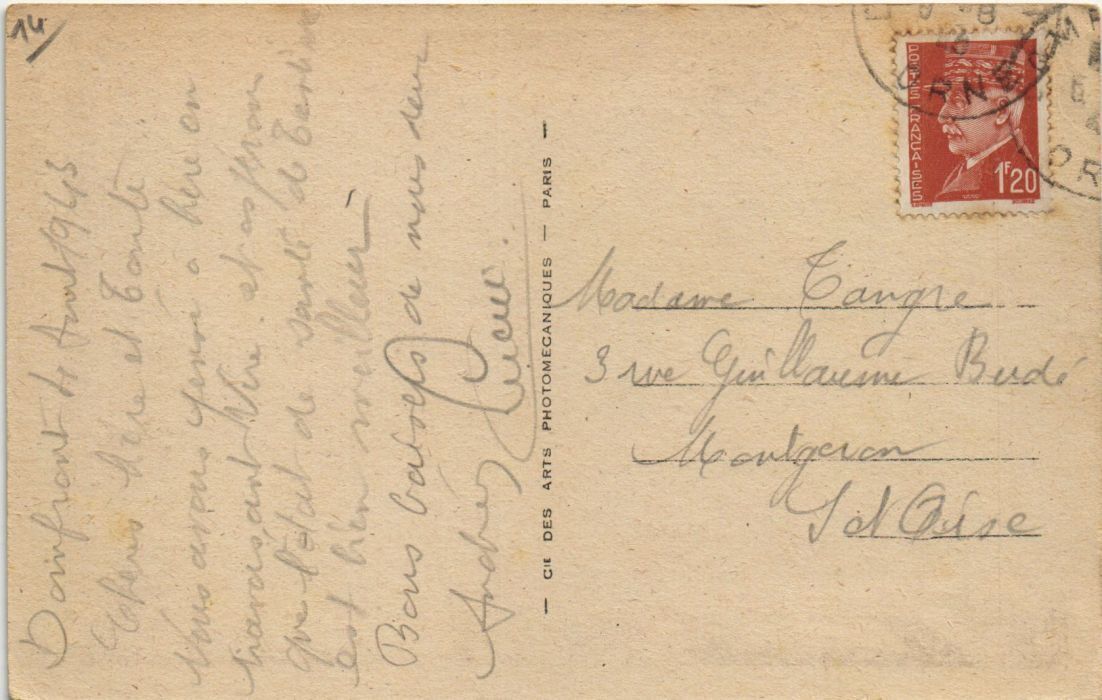 14
Domfront le Août 1943
Chers Père et Tante
Nous avons pensé à père en
traversant Vire et espérons
que l'état de santé de Tantine
est bien meilleur
Bons baisers de nous deux
Andrée
— CIE DES ARTS PHOTOMECANIQUES — PARIS —
POSTES FRANÇAISES
1F20
ORNE
OR
Madame Tangre
3 rue Guillaume Budé
Montgeron
S et Oise